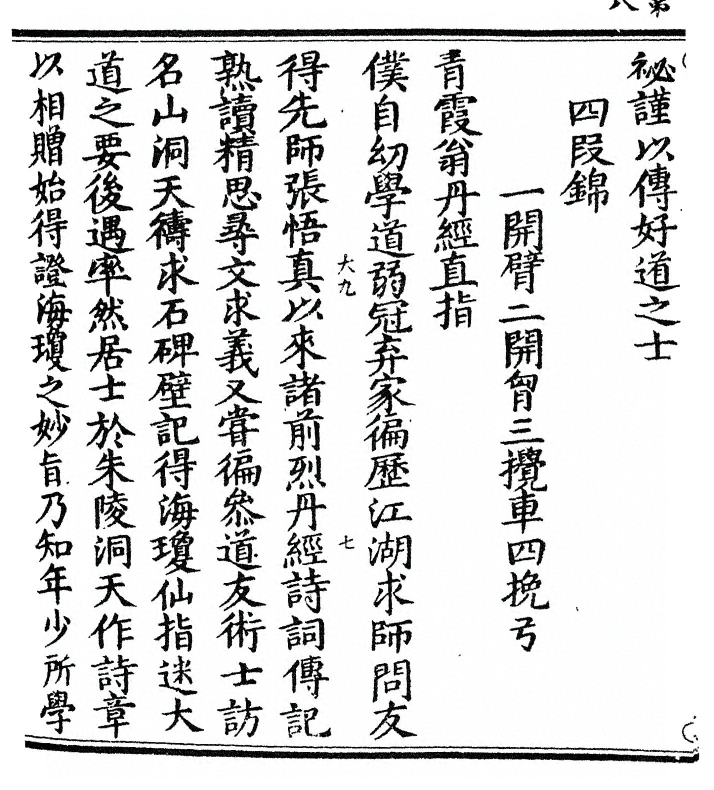 祕謹以傳好道之士
四段錦
一開臂二開胷三攪車四挽弓
青霞翁丹經直指
僕自幼學道弱冠弃家徧歷江湖求師問友
大九
七
得先師張悟真以來諸前烈丹經詩詞傳記
熟讀精思尋文求義又甞徧叅道友術士訪
名山洞天禱求石碑壁記得海瓊仙指迷大
道之要後遇率然居士於朱陵洞天作詩章
以相贈始得證海瓊之妙旨乃知年少所學